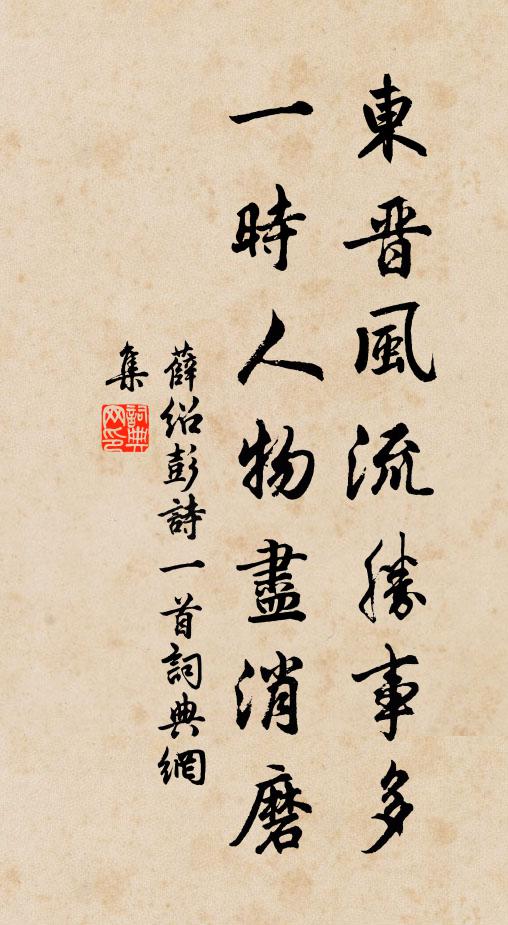 東晋風流勝事多
一時人物盡消磨
薛紹彭詩一首詞典網
集
詞典
网印